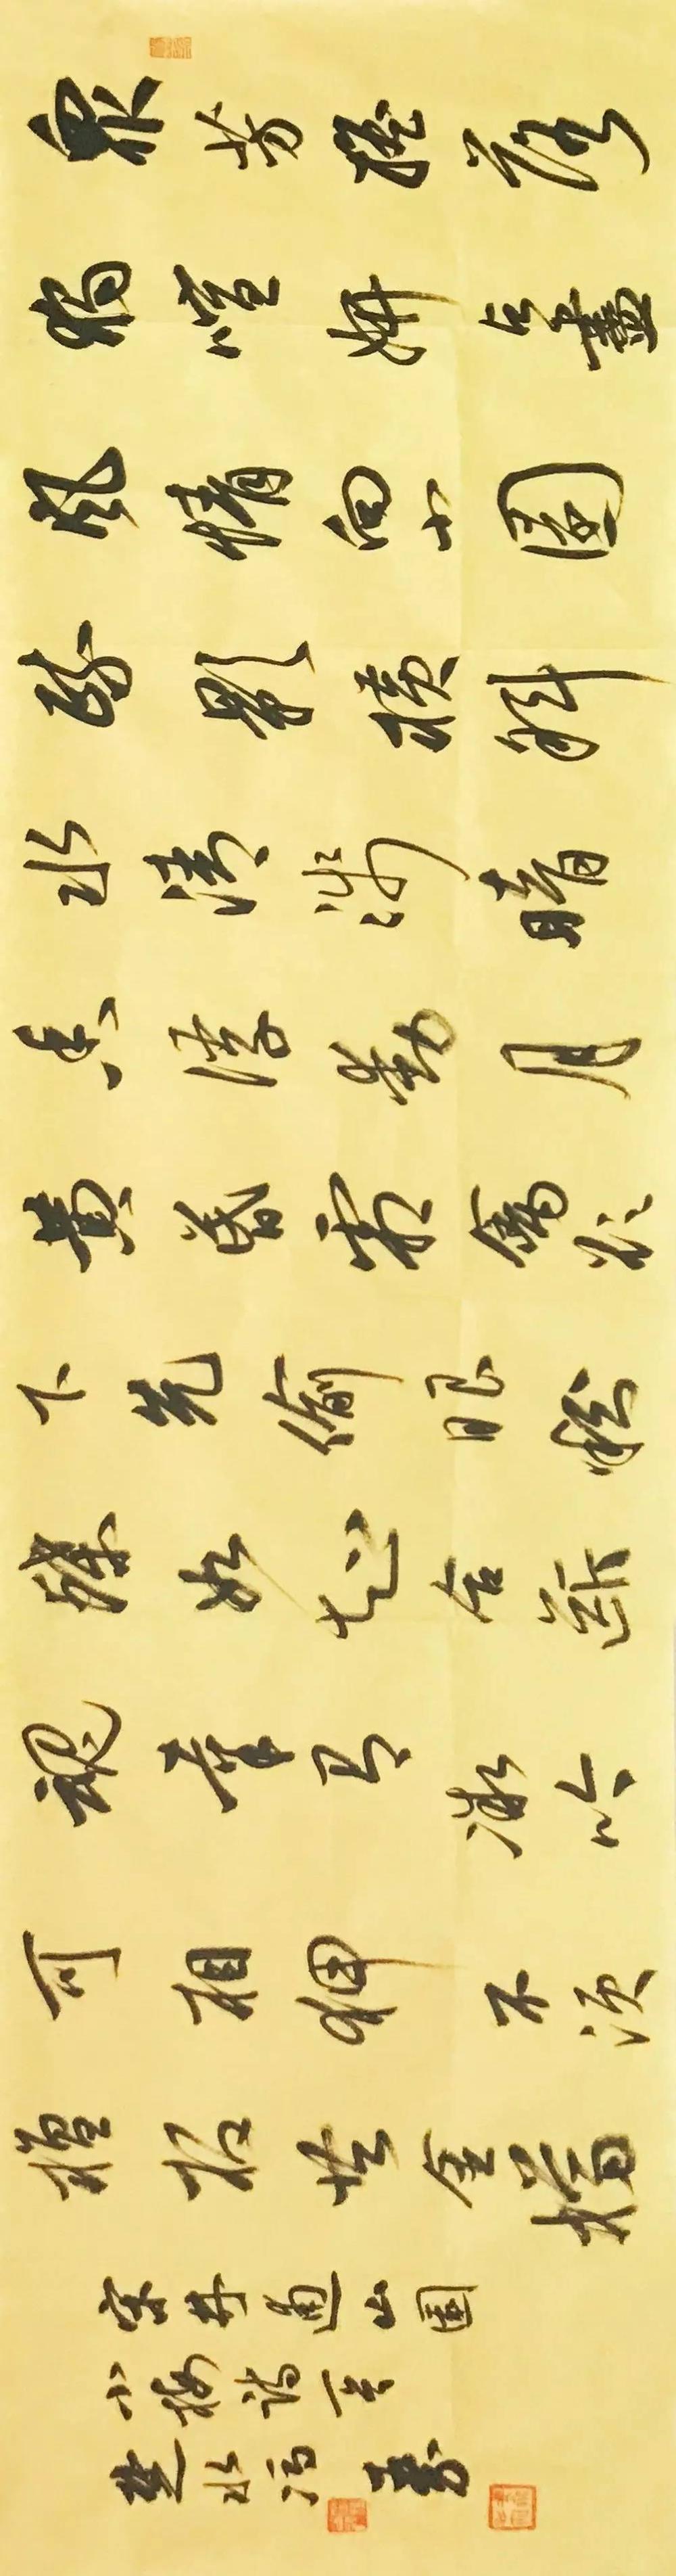 衆芳摇落
獨喧妍占盡
風情向小園
疏影横斜
水清淺暗
香浮動月
黄昏霜禽欲
下先偷眼粉
蝶如知合斷
魂幸有微吟
可相狎不須
檀板共金樽
宋林逋山園
小梅詩一首
楚水馮